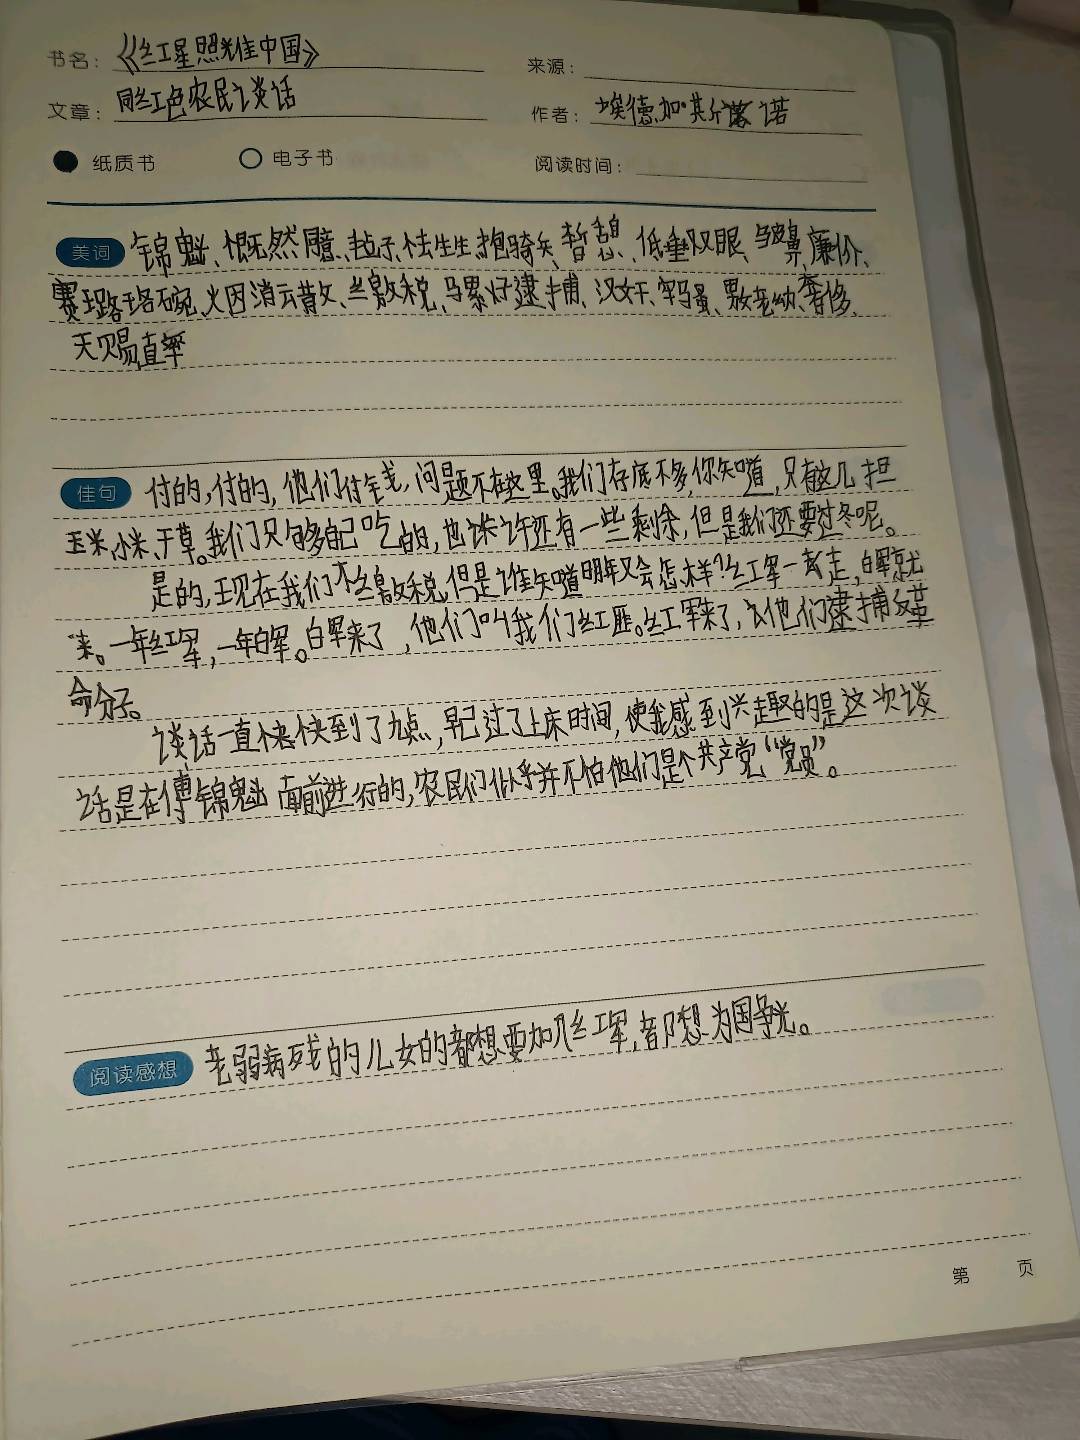 书名：《红星照耀中国》 来源：
文章：同红色农民谈话 作者：埃德加·斯诺
纸质书 电子书 阅读时间：
美词 锦魁、慨然同意、毡子、怯生生、抱骑兵、暂憩、低垂双眼、马鼻、廉价、
赛璐珞碗、火因消云散、缴税、马累好逮捕、汉奸、牢骚、男老幼、奢侈、
天赐直率
佳句 付的，付的，他们付钱，问题不在这里。我们存底不多，你知道，只有这几担
玉米、小米、干草。我们只够自己吃的，也许许还有一些剩余，但是我们还要过冬呢。
是的，现在我们不缴税，但是谁知道明年又会怎样？红军一离走，白军就
来。一年红军，一年白军。白军来了，他们叫我们红匪。红军来了，他们逮捕反革
命分子。
谈话一直快快到了九点，早已过了上床时间，使我感到兴趣的是这次谈
话是在傅锦魁面前进行的，农民们似乎并不怕他们是个共产党“党员”。
阅读感想 老弱病残的儿女的都想要加入红军，都想为国争光。
第 页